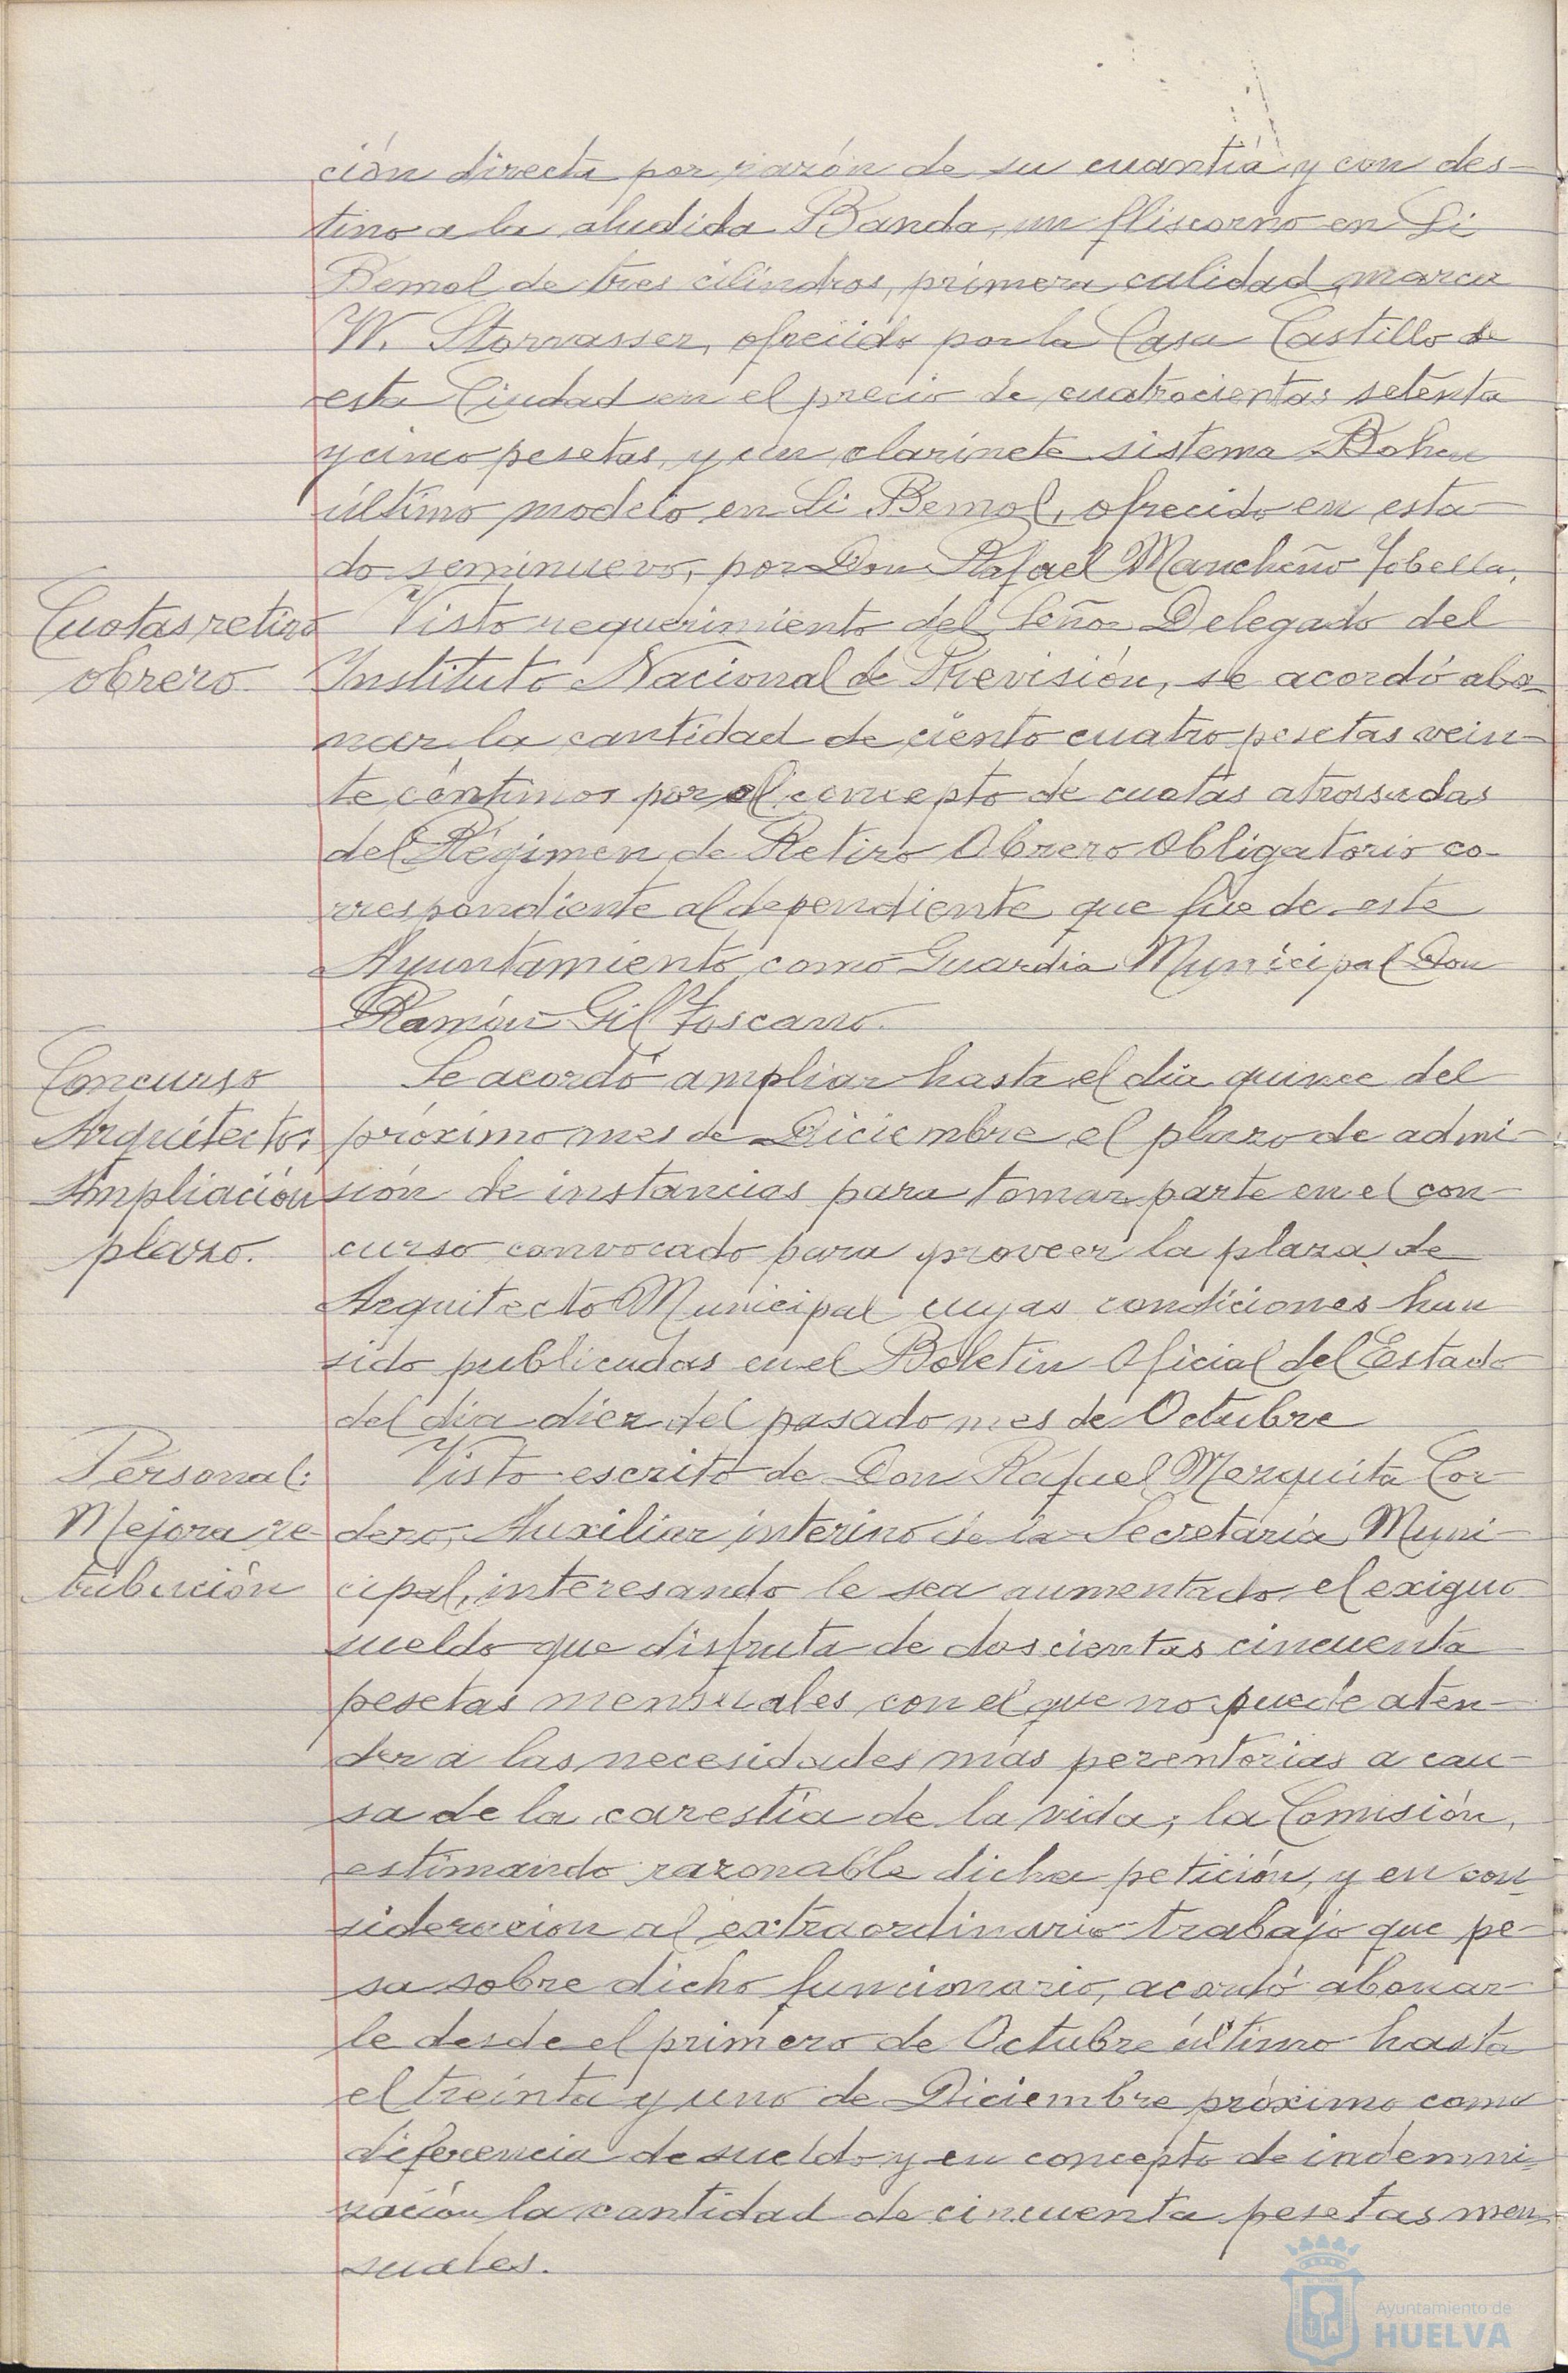 ción directa por razón de su cuantía y con des-
tino a la aludida Banda, un fliscorno en Si
Bemol de tres cilindros, primera calidad, marca
W. Storvasser, ofrecido por la Casa Castillo de
esta Ciudad en el precio de cuatrocientas setenta
y cinco pesetas, y un clarinete sistema Bohen
último modelo en Si Bemol, ofrecido en esta-
do seminuevo, por Don Rafael Mancheño
Cuotas retiro
obrero
Visto requerimiento del Señor Delegado del
Instituto Nacional de Previsión, se acordó abo-
nar la cantidad de ciento cuatro pesetas vein-
te céntimos por el concepto de cuotas atrasadas
del Régimen de Retiro Obrero Obligatorio co-
rrespondiente al dependiente que fue de este
Ayuntamiento como Guardia Municipal Don
Ramón Gil Toscano.
Concurso
Arquitecto:
Ampliación
plazo.
Se acordó ampliar hasta el día quince del
próximo mes de Diciembre el plazo de admi-
sión de instancias para tomar parte en el con-
curso convocado para proveer la plaza de
Arquitecto Municipal cuyas condiciones han
sido publicadas en el Boletín Oficial del Estado
del día diez del pasado mes de Octubre
Personal:
Mejora re-
tribución
Visto escrito de Don Rafael Mezquita Cor-
dero, Auxiliar interino de la Secretaría Muni-
cipal, interesando le sea aumentado el exiguo
sueldo que disfruta de doscientas cincuenta
pesetas mensuales con el que no puede aten-
der a las necesidades más perentorias a cau-
sa de la carestía de la vida; la Comisión,
estimando razonable dicha petición, y en con-
sideracion al extraordinario trabajo que pe-
sa sobre dicho funcionario, acordó abonar-
le desde el primero de Octubre último hasta
el treinta y uno de Diciembre próximo como
diferencia de sueldo y en concepto de indemni-
zación la cantidad de cincuenta pesetas men-
suales.
Ayuntamiento de
HUELVA